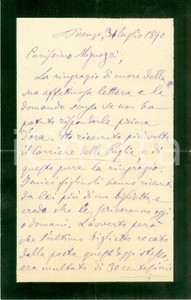 Firenze, 31 luglio 1890
Carissimo Mignozzi,
La ringrazio di cuore della
sua affettuosa lettera e le
domando scusa se non ho
potuto risponderle prima
d'ora. Ho ricevuto più volte
il Corriere delle Puglie, e di
questo pure la ringrazio.
I miei figliuoli hanno ricevuto
da lei più di un biglietto, e
credo che le scriveranno oggi
o domani. L'avverto però
che l'ultimo biglietto recato
dalla posta, quest'oggi stesso,
era multato di 30 centesimi